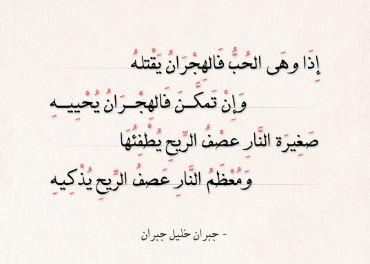 إِذَا وهَى الحُبُّ فَالهِجْرَانُ يَقْتلهُ
وَإِنْ تَمكَّـنَ فَالهِجْـرَانُ يُحْيِيـهِ
صَغِيرَة النَّارِ عصْفُ الرِّيحِ يُطْفِئُهَا
وَمُعْظَمُ النَّارِ عَصفُ الرِّيحِ يُذْكِيهِ
- جبران خليل جبران